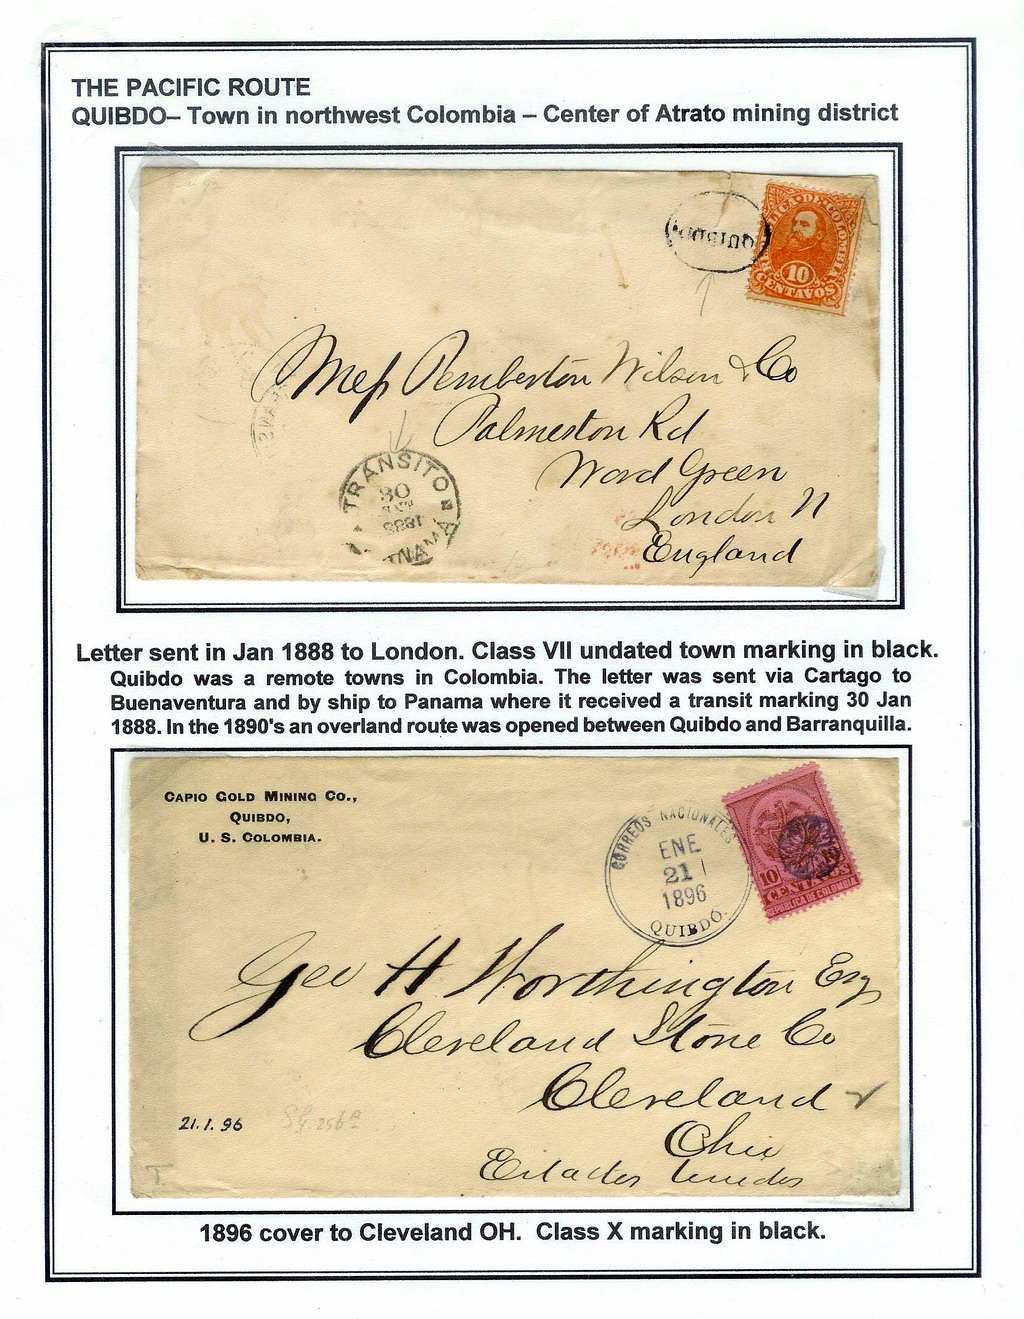 THE PACIFIC ROUTE
QUIBDO– Town in northwest Colombia – Center of Atrato mining district
QUIBDO
REPUBLICA DE COLOMBIA
10
CENTAVOS
Mess Pemberton Wilson & Co
Palmeston Rd
Word Green
London N
England
TRANSITO
30
1888
PANAMA
Letter sent in Jan 1888 to London. Class VII undated town marking in black.
Quibdo was a remote towns in Colombia. The letter was sent via Cartago to
Buenaventura and by ship to Panama where it received a transit marking 30 Jan
1888. In the 1890's an overland route was opened between Quibdo and Barranquilla.
CAPIO GOLD MINING CO.,
QUIBDO,
U. S. COLOMBIA.
CORREOS NACIONALES
ENE
21
1896
QUIBDÓ.
10
CENTAVOS
REPUBLICA DE COLOMBIA
Geo H Worthington Esq
Cleveland Stone Co
Cleveland
Ohio
Estados Unidos
21.1.96
1896 cover to Cleveland OH. Class X marking in black.